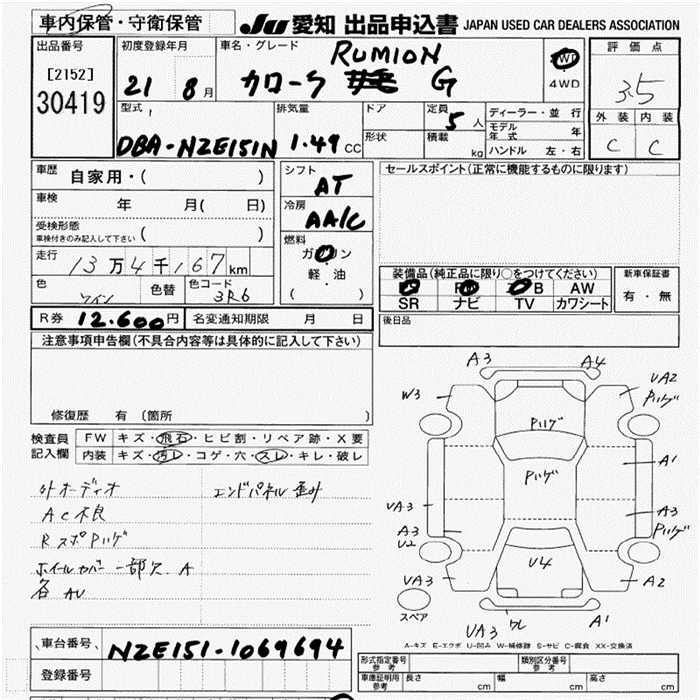 車内保管・守衛保管
JU 愛知 出品申込書 JAPAN USED CAR DEALERS ASSOCIATION
出品番号
[2152]
30419
初度登録年月
21 8月
車名・グレード
RUMION
カローラ G
4WD
評価点
3.5
外装 内装
C C
型式
DBA-NZE151N
排気量
1.49 CC
ドア
形状
定員 5人
積載 kg
ディーラー・並行
モデル年式 年
ハンドル 左・右
車歴 自家用・( )
車検 年 月( 日)
受検形態
車検付きのみ記入して下さい ( )
走行 13万4千167km
色 ワイン 色替 色コード 3R6
シフト AT
冷房 AA/C
燃料
ガソリン
軽・油
( )
セールスポイント(正常に機能するものに限ります)
装備品(純正品に限り○をつけてください)
B AW
SR ナビ TV カワシート
新車保証書
有・無
R券 12.600円 名変通知期限 月 日
後日品
注意事項申告欄(不具合内容等は具体的に記入して下さい)
修復歴 有(箇所 )
検査員記入欄
FW キズ・飛石・ヒビ割・リペア跡・X要
内装 キズ・汚レ・コゲ・穴・スレ・キレ・破レ
外オーディオ エンドパネル歪み
AC不良
RスポPハゲ
ホイールカバー一部欠.A
各AU
A3 A4
W3 UA2
Pハゲ
Pハゲ
Pハゲ
A1
UA3
A3
U2
A3
Pハゲ
U4
UA3
A2
スペア
UA3 ワレ A1
A-キズ E-エクボ U-凹み W-補修跡 S-サビ C-腐食 XX-交換済
車台番号 NZE151-1069694
登録番号
形式指定番号 参考
類別区分番号 参考
車庫証明用 参考
長さ cm 幅 cm 高さ cm